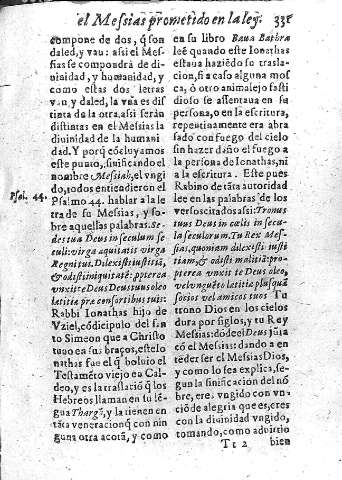 el Messias prometido en la ley. 331
compone de dos, q̃ son
daled, y vau: assi el Mes-
sias se compondrà de di-
uinidad, y humanidad, y
como estas dos letras
vau, y daled, la vña es dis-
tinta de la otra. assi seràn
distintas en el Messias la
diuinidad de la humani-
dad. Y porq̃ cõcluyamos
este punto, sinificando el
nombre Messiah, el vngi-
do, todos entendieron el
Psalmo 44. hablar a la le-
tra de su Messias, y so-
bre aquellas palabras. Se-
des tua Deus in seculum se-
culi: virga æquitatis virga
Regni tui. Dilexisti iustitiã,
& odisti iniquitatẽ: ppterea
vnxit te Deus Deus tuus oleo
lætitiæ præ consortibus tuis:
Rabbi Ionathas hijo de
Vziel, cõdicipulo del san
to Simeon que a Christo
tuuo en sus braços, este Io
nathas fue el q̃ boluio el
Testamẽto viejo en Cal-
deo, y es la traslaciõ q̃ los
Hebreos llaman en su lẽ-
gua Thargũ, y la tienen en
tãta veneracion q̃ con nin
guna otra acotã, y como
Psal. 44.
en su libro Baua Bathra
leẽ quando este Ionathas
estaua haziẽdo su trasla-
cion, si a caso alguna mos
ca, ò otro animalejo fasti
dioso se assentaua en su
persona, o en la escritura,
repentinamente era abra
sado con fuego del cielo
sin hazer daño el fuego a
la persona de Ionathas, ni
a la escritura. Este pues
Rabino de tãta autoridad
lee en las palabras de los
versos citados assi: Tronus
tuus Deus in cœlis in secu-
la seculorum. Tu Rex Mes-
sias, quoniam dilexisti iusti
tiam, & odisti malitiã: pro-
pterea vnxit te Deus oleo,
vel vnguẽto lætitiæ plusquã
socios vel amicos tuos Tu
trono Dios en los cielos
dura por siglos, y tu Rey
Messias: dõde el Deus jũta
cõ el Messias: dando a en-
tẽder ser el Messias Dios,
y como lo sea explica, se-
gun la sinificacion del nõ
bre, ere vngido con vn-
ciõ de alegria que es, eres
con la diuinidad vngido,
tomando, como aduirtio
Tt 2 bien